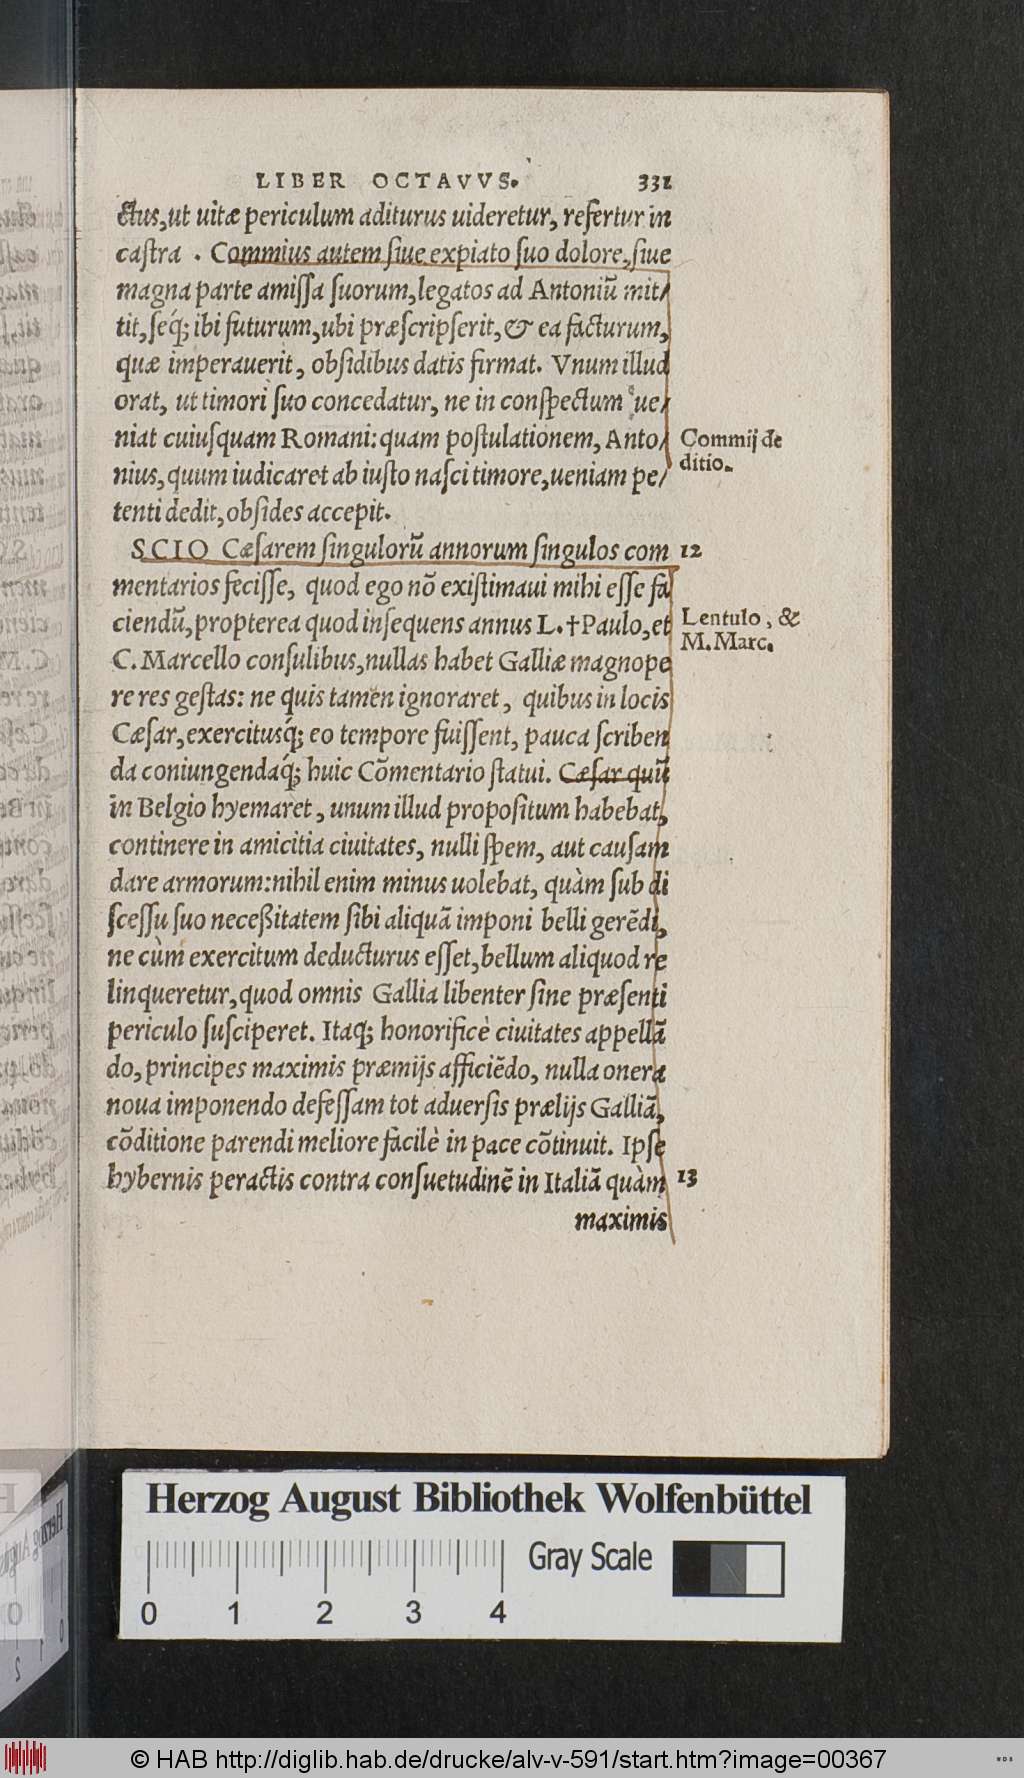 LIBER OCTAVVS. 331
ctus, ut uitæ periculum aditurus uideretur, refertur in
castra . Commius autem siue expiato suo dolore, siue
magna parte amissa suorum, legatos ad Antoniũ mit/
tit, seq́; ibi futurum, ubi præscripserit, & ea facturum,
quæ imperauerit, obsidibus datis firmat. Vnum illud
orat, ut timori suo concedatur, ne in conspectum ue/
niat cuiusquam Romani: quam postulationem, Anto/
Commij de
nius, quum iudicaret ab iusto nasci timore, ueniam pe/
ditio.
tenti dedit, obsides accepit.
SCIO Cæsarem singulorũ annorum singulos com
12
mentarios fecisse, quod ego nõ existimaui mihi esse fa
ciendũ, propterea quod insequens annus L. †Paulo, et
Lentulo, &
M. Marc.
C. Marcello consulibus, nullas habet Galliæ magnope
re res gestas: ne quis tamen ignoraret, quibus in locis
Cæsar, exercitusq́; eo tempore fuissent, pauca scriben
da coniungendaq́; huic Cõmentario statui. Cæsar quũ
in Belgio hyemaret, unum illud propositum habebat,
continere in amicitia ciuitates, nulli spem, aut causam
dare armorum: nihil enim minus uolebat, quàm sub di
scessu suo neceßitatem sibi aliquã imponi belli gerẽdi,
ne cùm exercitum deducturus esset, bellum aliquod re
linqueretur, quod omnis Gallia libenter sine præsenti
periculo susciperet. Itaq; honorificè ciuitates appellã
do, principes maximis præmijs afficiẽdo, nulla onera
noua imponendo defessam tot aduersis prælijs Galliã,
cõditione parendi meliore facilè in pace cõtinuit. Ipse
hybernis peractis contra consuetudinẽ in Italiã quàm
13
maximis
Herzog August Bibliothek Wolfenbüttel
Gray Scale
0 1 2 3 4
© HAB http://diglib.hab.de/drucke/alv-v-591/start.htm?image=00367